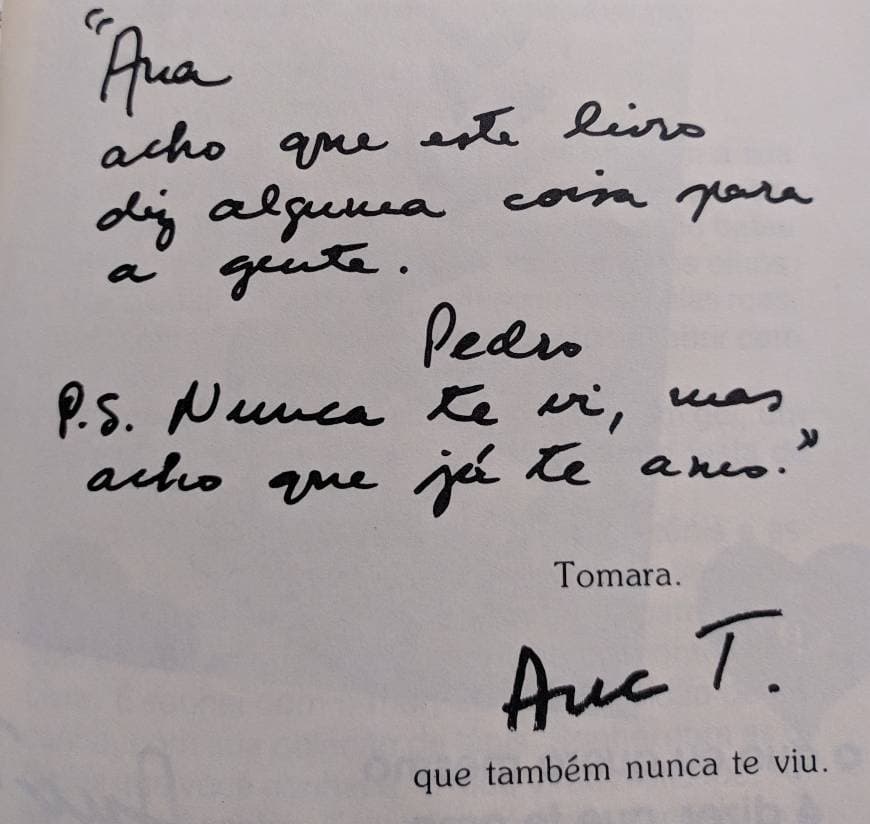 "Ana
acho que este livro
diz alguma coisa para
a gente.
Pedro
P.S. Nunca te vi, mas
acho que já te amo."
Tomara.
Ana T.
que também nunca te viu.